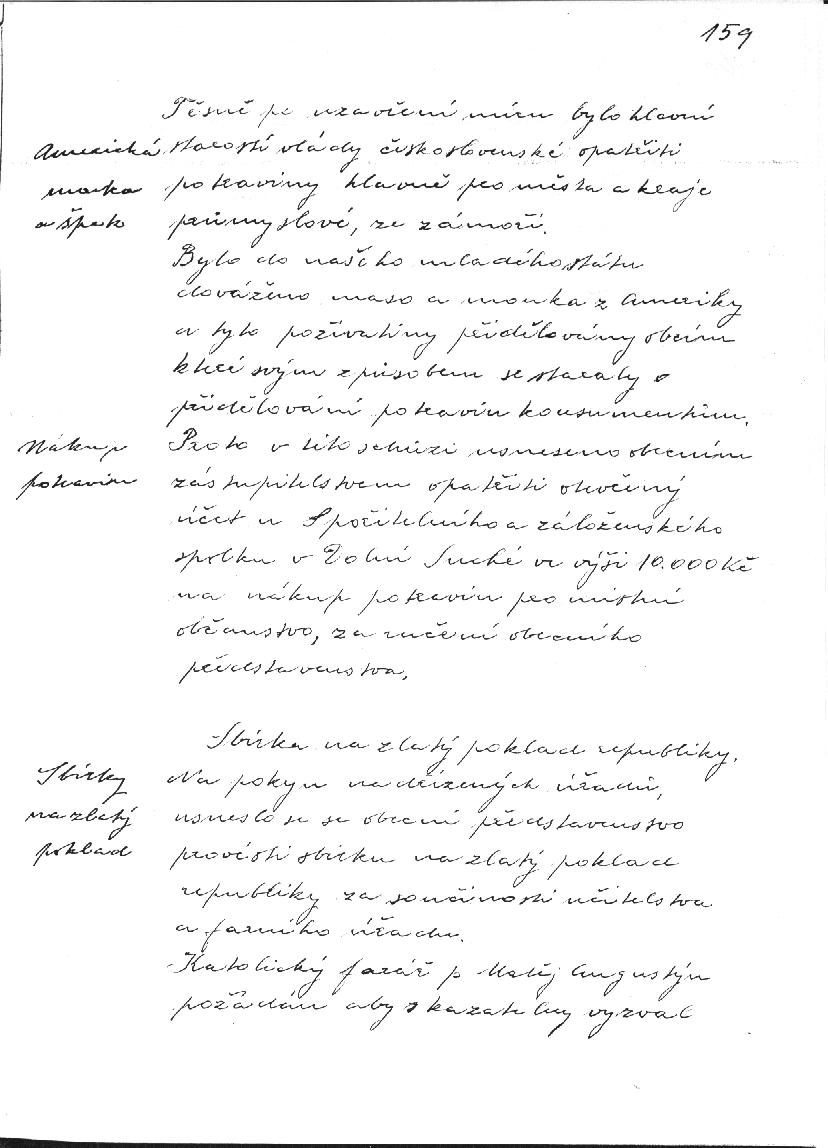 159
Těsně po uzavření míru bylo hlavní
Americká
mouka
a špek
starostí vlády československé opatřiti
potraviny hlavně pro města a kraje
průmyslové, ze zámoří.
Bylo do našeho mladého státu
dováženo maso a mouka z Ameriky
a tyto poživatiny přidělovány obcím
kteří svým způsobem se staraly o
přidělování potravin konsumentům.
Nákup
potravin
Proto v této schůzi usneseno obecním
zastupitelstvem opatřiti otevřený
účet u Spořitelního a záloženského
spolku v Dolní Suché ve výši 10.000 Kč
na nákup potravin pro místní
občanstvo, za ručení obecního
představenstva.
Sbírka na zlatý poklad republiky.
Sbírky
na zlatý
poklad
Na pokyn nadřízených úřadů,
usneslo se se obecní představenstvo
provésti sbírku na zlatý poklad
republiky za součinosti učitelstva
a farního úřadu.
Katolický farář p Matěj Augustýn
požádán aby s kazatelny vyzval